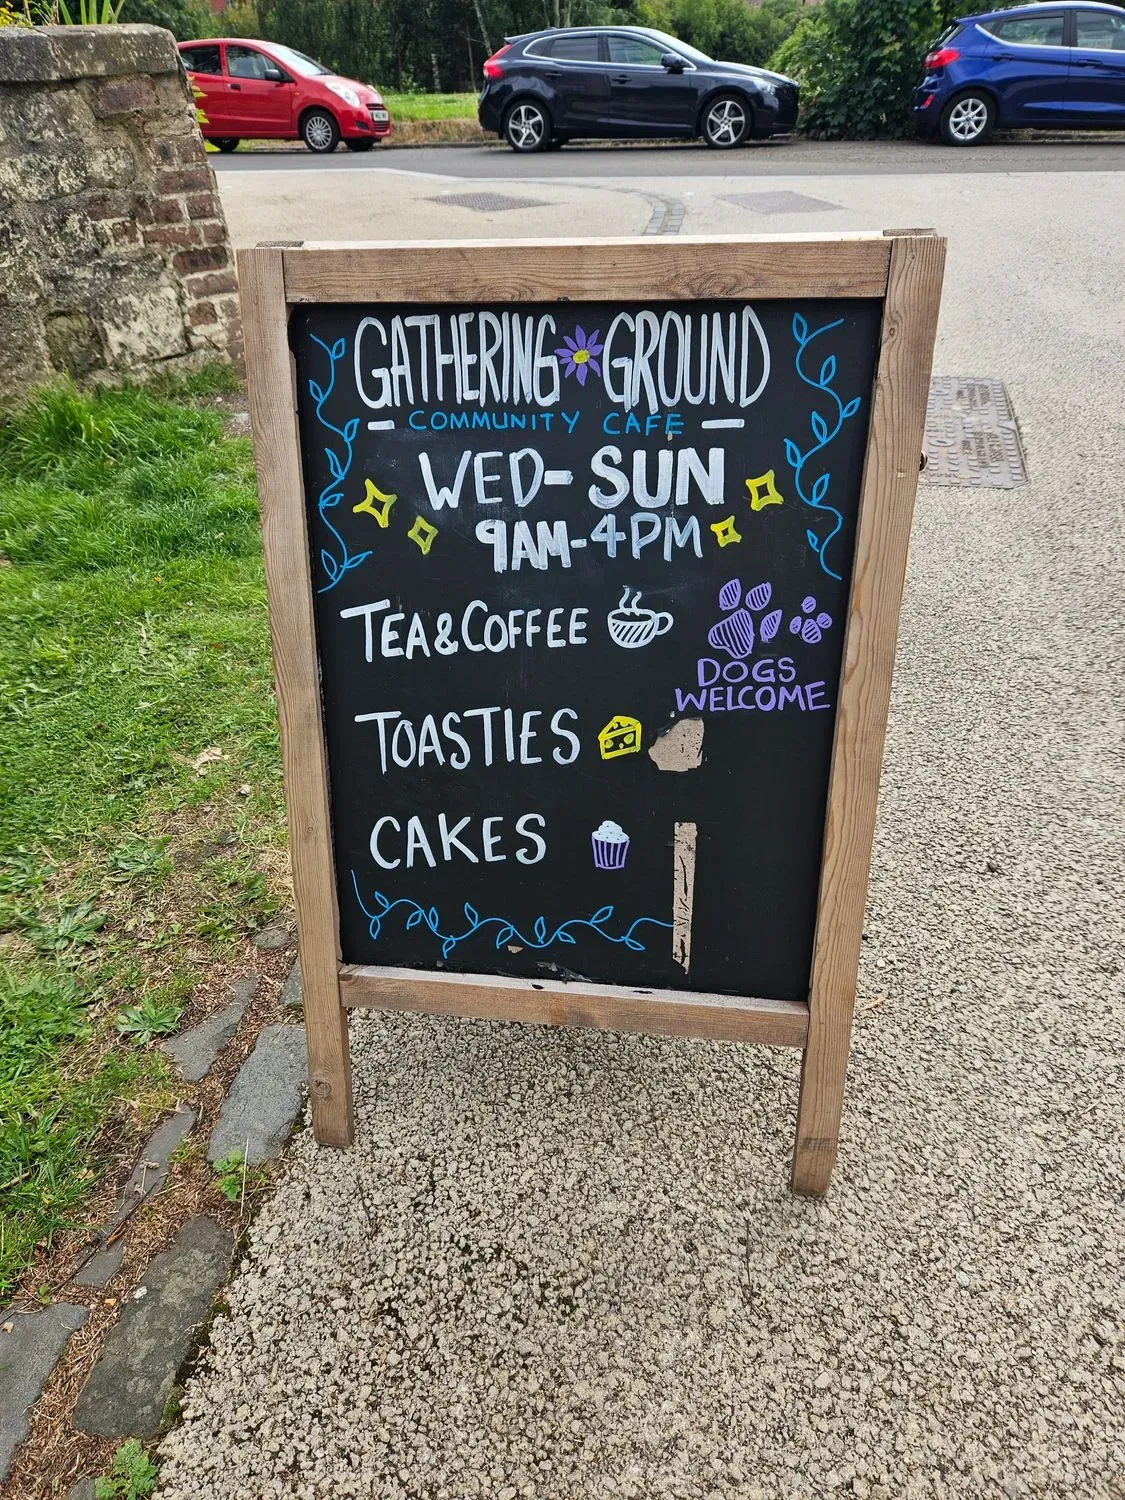 GATHERING GROUND
COMMUNITY CAFE
WED- SUN
9AM-4PM
TEA&COFFEE
DOGS
WELCOME
TOASTIES
CAKES